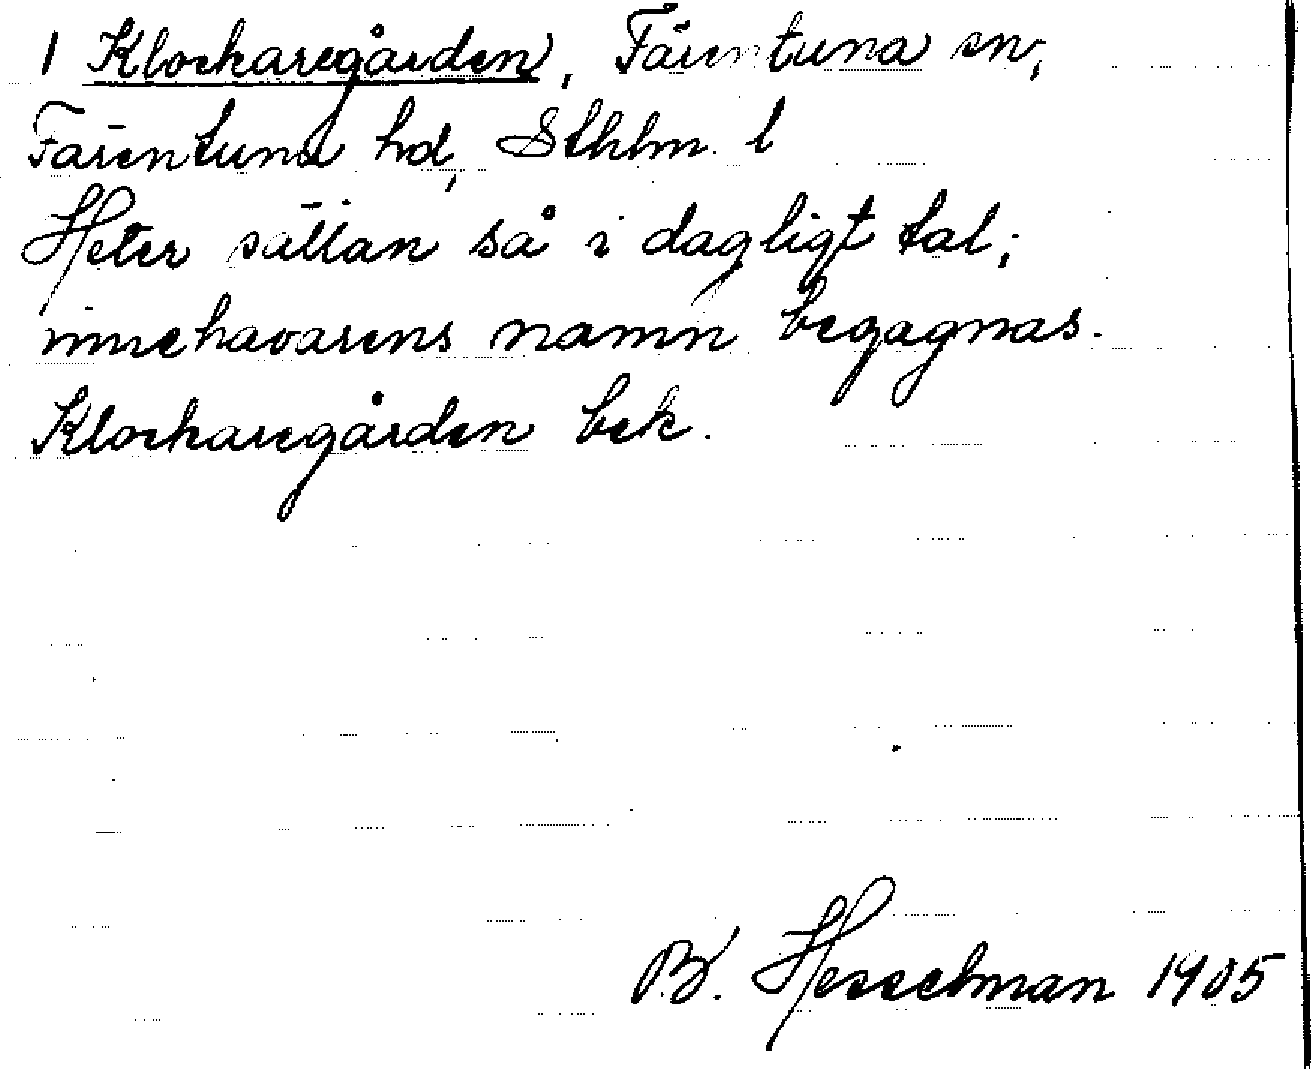 1 Klockaregården, Färentuna sn,
Färentuna hd, Sthlm. l
Heter sällan så i dagligt tal;
innehavarens namn begagnas.
Klockaregården bek.
B. Hesselman 1905